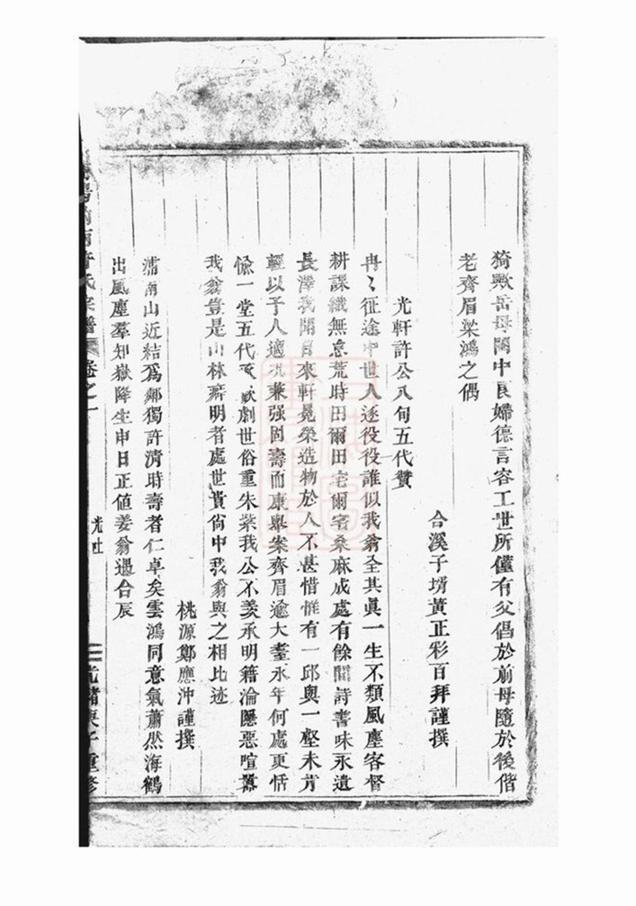 猗歟岳母閫中良婦德言容工世所僅有父倡於前母隨於後偕
老齊眉梁鴻之偶
合溪子壻黃正彩百拜謹撰
光軒許公八旬五代贊
冉冉征途中世人逐役役誰似我翁全其眞一生不類風塵客督
耕課織無怠荒時田爾田宅爾宅桑麻成處有餘閒詩書味永遺
長澤我聞自來軒冕榮造物於人不甚惜惟有一邱與一壑未肯
輕以予人適 兼强固壽而康舉案齊眉逾大耋永年何處更恬
愉一堂五代 劇世俗重朱紫我公不羨承明籍淪隱惡喧囂
我翁豈是山林癖明者處世貴尚中我翁與之相比迹
桃源鄭應沖謹撰
浦南山近結爲鄰獨許清時壽者仁卓矣雲鴻同意氣蕭然海鶴
出風塵羣知嶽降生申日正値姜翁遇合辰
南許氏宗譜 卷之一 光緒庚子重修